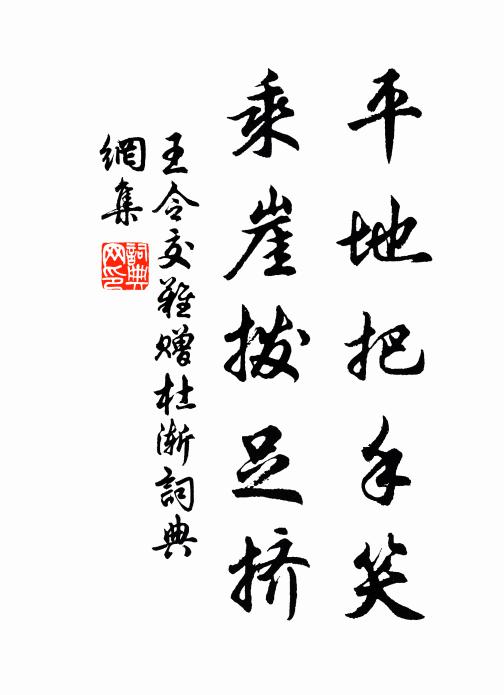 平地把手笑
乘崖拨足挤
王令交难赠杜渐詞典
網集
詞典
网印